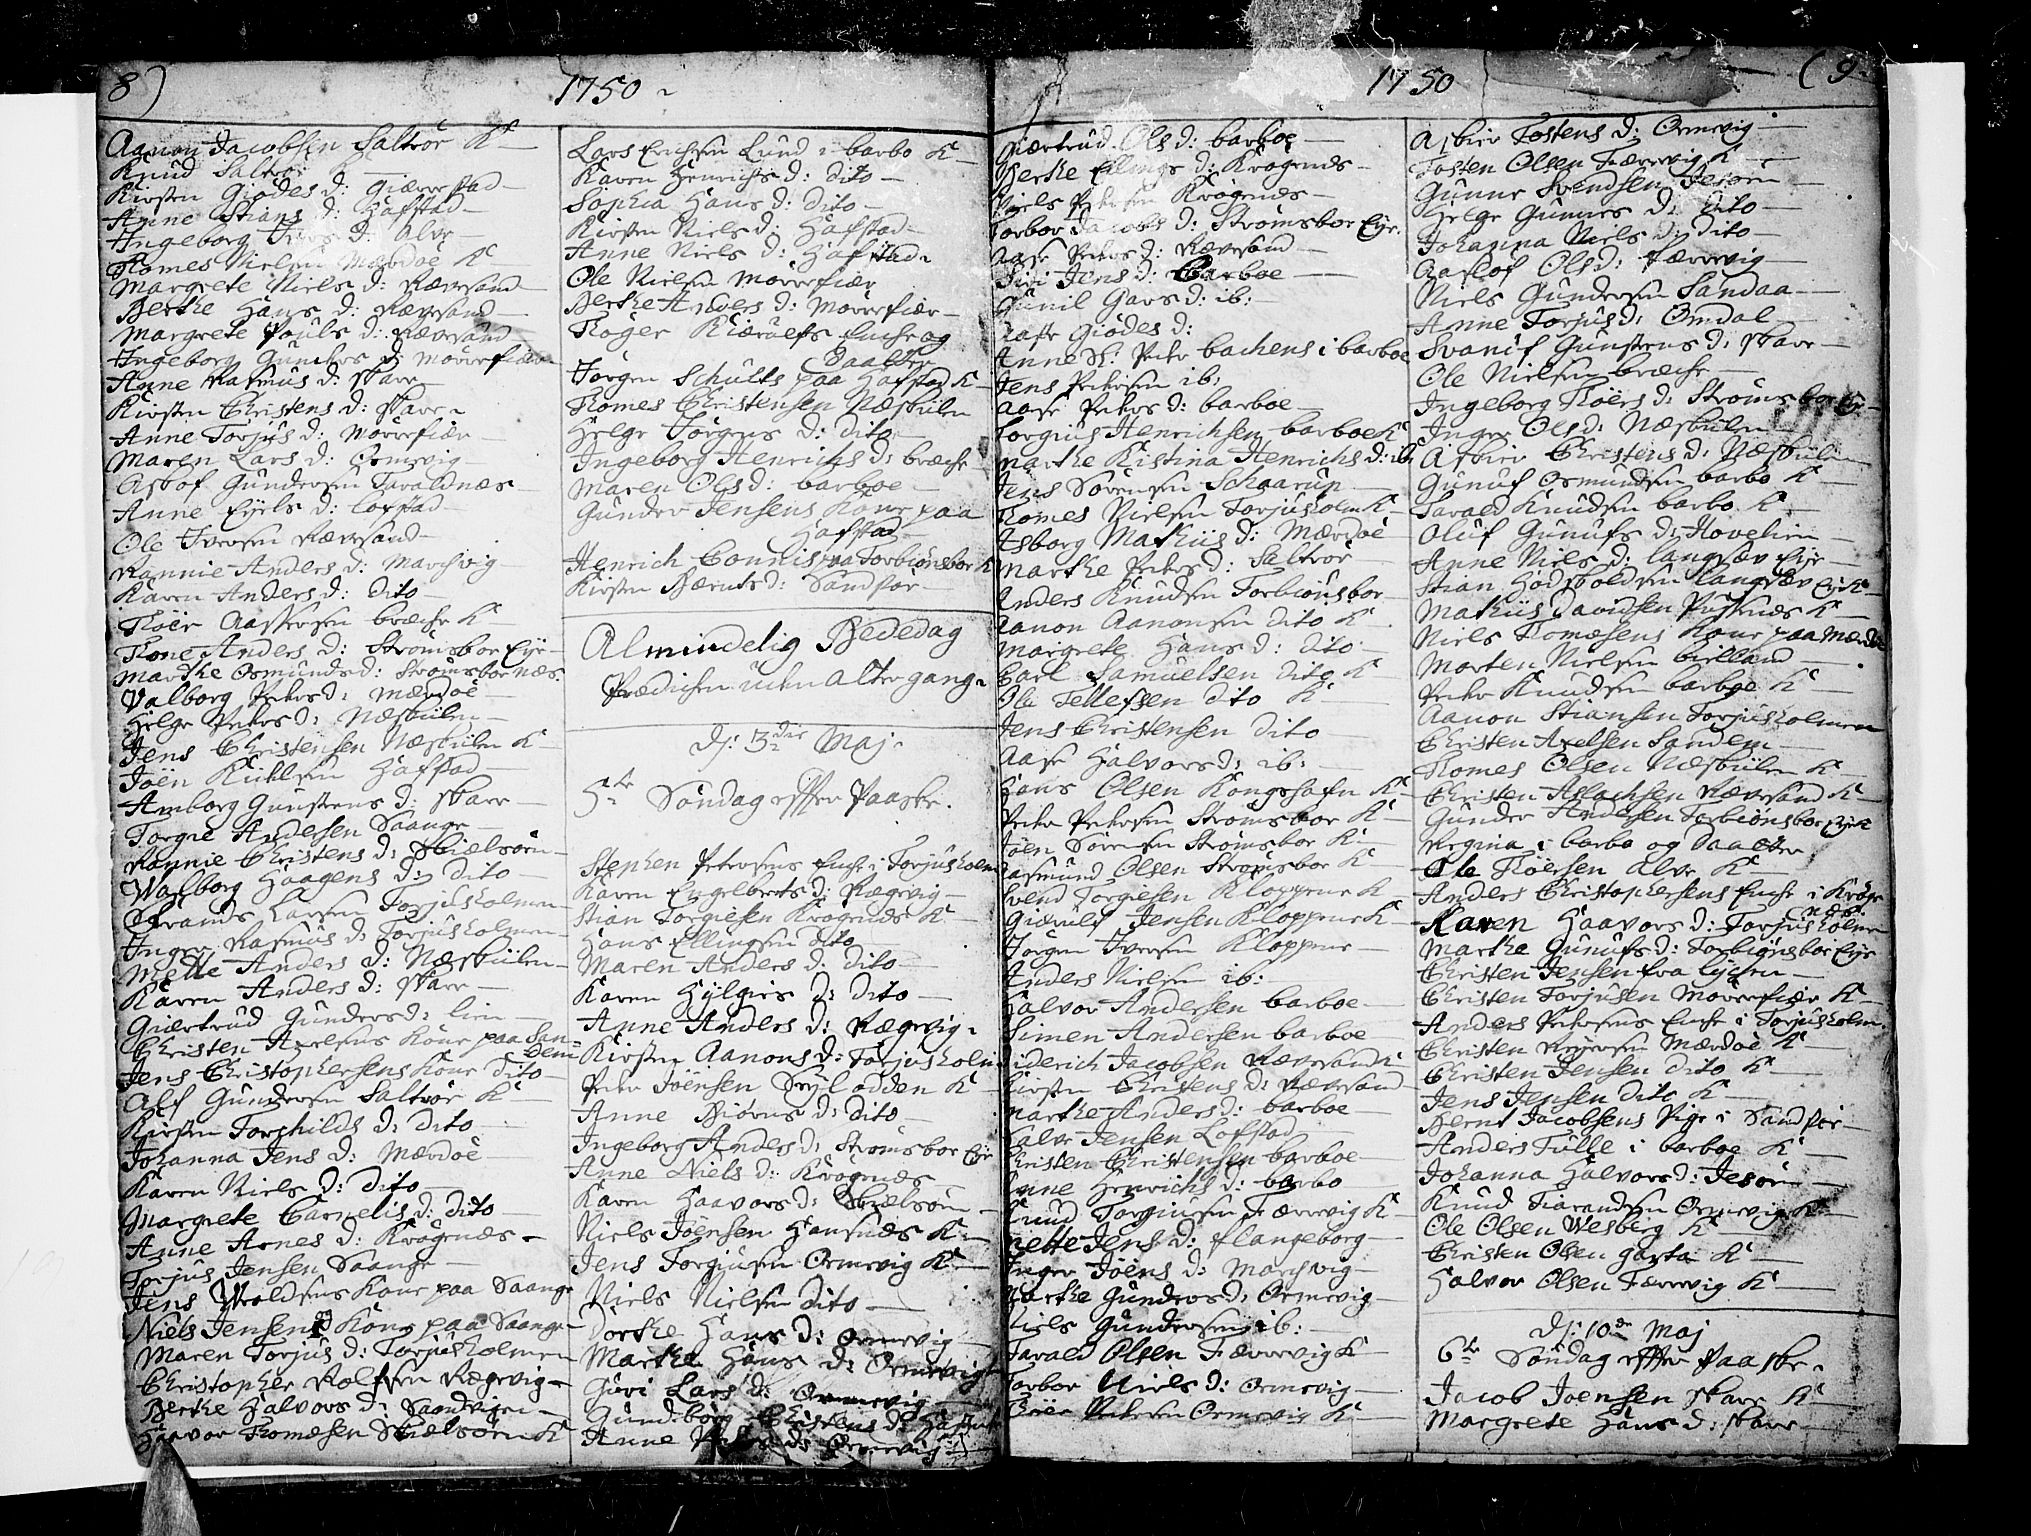 8)
1750
Aanon Jacobsen Saltrör K
Knud Saltrör
Kirsten Giödes d: Giæverstad
Anne Stians d: Hafstad
Ingeborg Ivers d: Alve
Thomes Nielsen Mærdöe K
Margrete Niels d: Rævesand
Berthe Hans d: Rævesand
Margrete Pouls d: Rævesand
Ingeborg Gunders d: Morrefiær
Anne Rasmus d: Skare
Kirsten Christens d: Skare
Anne Torjus d: Morrefiær
Maren Lars d: Ormevig
Aslof Gundersen Taraldnæs
Anne Eyels d: Lofstad
Ole Iversen Rævesand
Rannie Anders d: Marchvig
Karen Anders d: dito
Thöer Aassersen bræche K
Thone Anders d: Strömsboe Eye
Marthe Osmunds d: Strömsboe næs
Valborg Peters d: Mærdöe
Helge Peters d: Næskiilen
Jens Christensen Næskiilen K
Jöen Hafstad
Amborg Gunstens d: Skare
Torgie Andersen Saange
Rannie Christens d: Skielsöen
Walborg Haagens d: dito
Larsen Torjusholmen
Inger Rasmus d: Torjusholmen
Mette Anders d: Næskiilen
Karen Anders d: Skare
Giertrud Gunders d: Lien
Christen Axelsens Kone paa Sandem
Jens Christophersens Kone dito
Alf Gundersen Saltrör K
Kirsten Torchilds d: dito
Johanna Jens d: Mærdöe
Karen Niels d: dito
Margrete Cornelis d: dito
Anne Arnes d: Krögenæs
Torjus Jensen Saange
Jens Kone paa Saange
Niels Jensens Kone paa Saange
Maren Torjus d: Torjusholmen
Christopher Rolfsen Rægevig
Berthe Halvors d: Saandvigen
Haavor Thomesen Skielsöen K
Lars Erichsen Lund i barbo K
Karen Henrichs d: dito
Sophia Hans d: dito
Kirsten Niels d: Hafstad
Anne Niels d: Hafstad
Ole Nielsen Morrefiær
Berthe Anders d: Morrefiær
Thöger Kiærulfs Enche og
Daatter
Jörgen Schults paa Hafstad K
Thomes Christensen Næskiilen
Helge Jörgens d: dito
Ingeborg Henrichs d: bræche
Maren Ols d: barboe
Gunder Jensens Kone paa
Hafstad
Henrich Connis paa Torbiönsboe K
Kirsten Bærnts d: Sandför
Almindelig Bededag
Prædichen uden Altergang
D: 3die Maj
5te Söndag effter Paaske.
Stephen Petersens Enche i Torjusholm
Karen Engelberts d: Rægevig
Stian Torgiesen Krögenæs K
Hans Ellingsen dito
Maren Anders d: dito
Karen Hylgies d: dito
Anne Anders d: Rægevig
Kirsten Aanons d: Torjusholm
Peder Jöensen Seyl odden K
Anne Biörns d: dito
Ingeborg Anders d: Strömsboe Eye
Anne Niels d: Krögenæs
Karen Haavors d: Skielsöen
Niels Jöensen Hansnæs K
Jens Torgiusen Ormevig K
Niels Nielsen dito
Dorthe Hans d: Ormevig
Marthe Hans d: Ormevig
Guri Lars d: Ormevig
Gundeborg Christens d:
Anne Peters d: Ormevig
1750
(9
Giærtrud Ols d: barboe
Berthe Ellings d: Krögenæs
Niels Petersen Krögenæs
Torbor Jacobs d: Strömsboe Eye
Aase Peters d: Rævesand
Siri Jens d: Barboe
Gunil Gars d: ib:
Aase Giödes d:
Anne Sl: Peder bachens i barboe
Jens Petersen ib:
Aase Peters d: barboe
Torgius Henrichsen barboe K
Marthe Kistina Henrichs d: ib:
Jens Sörensen Schaarup
Thomes Nielsen Torjusholm K
Isborg Mathiis d: Mærdöe
Marthe Peters d: Saltrör
Anders Knudsen Torbiönsboe
Aanon Aanonsen dito K
Margrete Hans d: dito
Carl Samuelsen dito K
Ole Tellefsen dito K
Jens Christensen dito
Aase Halvors d: ib:
Hans Olsen Kongshafn K
Peter Petersen Strömsboe K
Jöen Sörensen Strömsboe K
Rasmund Olsen Strömsboe K
Svend Torgiesen Kloppene K
Giæruls Jensen Kloppene K
Jörgen Iversen Kloppene
Anders Nielsen ib:
Halvor Andersen barboe
Simen Andersen barboe
Diderich Jacobsen Rævesand K
Kirsten Christens d: Rævesand
Marthe Anders d: barboe
Salve Jensen Lofstad
Christen Christensen barboe
Anne Henrichs d: barbo
Knud Torgiusen Færrevig K
Mette Jens d: Flangeborg
Inger Jöens d: Marchvig
Marthe Gunders d: Ormevig
Niels Gundersen ib:
Tarald Olsen Færrevig K
Torbor Niels d: Ormevig
Thöer Petersen Ormevig K
Asbiör Tostens d: Ormevig
Tosten Olsen Færrevig K
Gunne Svendsen Jesöen
Helge Gunnes d: dito
Johanna Niels d: dito
Aaslof Ols d: Færrevig
Niels Gundersen Sandaa
Anne Torjus d: Omdal
Svanif Gunstens d: Skare
Ole Nielsen bræche
Ingeborg Thöers d: Strömsboe Eye
Inger Ols d: Næskiilen
Asbiör Christens d: Næskiilen
Gunuf Osmundsen barbo K
Tarald Knudsen barbo K
Oluf Gunufs d: Hovelien
Anne Niels d: Langsæv Eye
Stian Hodskoldsen Langsæv Eye K
Mathiis Davidsen Pusnæs K
Niels Thomæsens Kone paa Mærdöe
Morten Nielsen biilland
Peder Knudsen barboe K
Aanon Stiansen Torjusholmen
Christen Axelsen Sandem
Thomes Olsen Næskiilen K
Christen Aslachsen Rævesand K
Gunder Andersen Torbiönsboe Eye
Regina i barbo og Daatter
Ole Thöersen Alve K
Anders Christophersens Enche i Kröge
næs.
Karen Haavors d: Torjusholm
Marthe Gunufs d: Torbiönsboe Eye
Christen Jensen fra Eychen
Christen Torjusen Morrefiær K
Anders Petersens Enche i Torjusholm.
Christen Reyersen Mærdöe K
Christen Jensen dito K
Jens Jensen dito K
Bernt Jacobsens Pige i Sandför
Anders Tulle i barboe K
Johanna Halvors d: Jesöen
Knud Tiærandsen Ormevig K
Ole Olsen Wesberg K
Christen Olsen Garta K
Halvor Olsen Færrevig K
D: 10de Maj
6te Söndag effter Paaske.
Jacob Joensen Skare K
Margrete Hans d: Skare